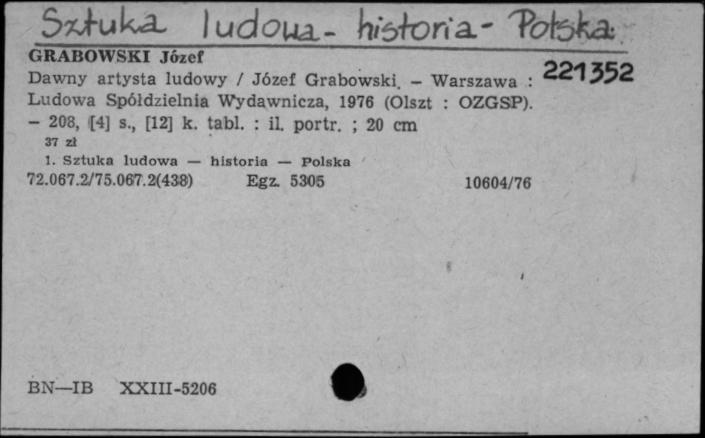 Sztuka ludowa - historia - Polska
GRABOWSKI Józef
221352
Dawny artysta ludowy / Józef Grabowski. — Warszawa :
Ludowa Spółdzielnia Wydawnicza, 1976 (Olszt : OZGSP).
— 208, [4] s., [12] k. tabl. : il. portr. ; 20 cm
37 zł
1. Sztuka ludowa — historia — Polska
72.067.2/75.067.2(438) Egz. 5305 10604/76
BN—IB XXIII-5206